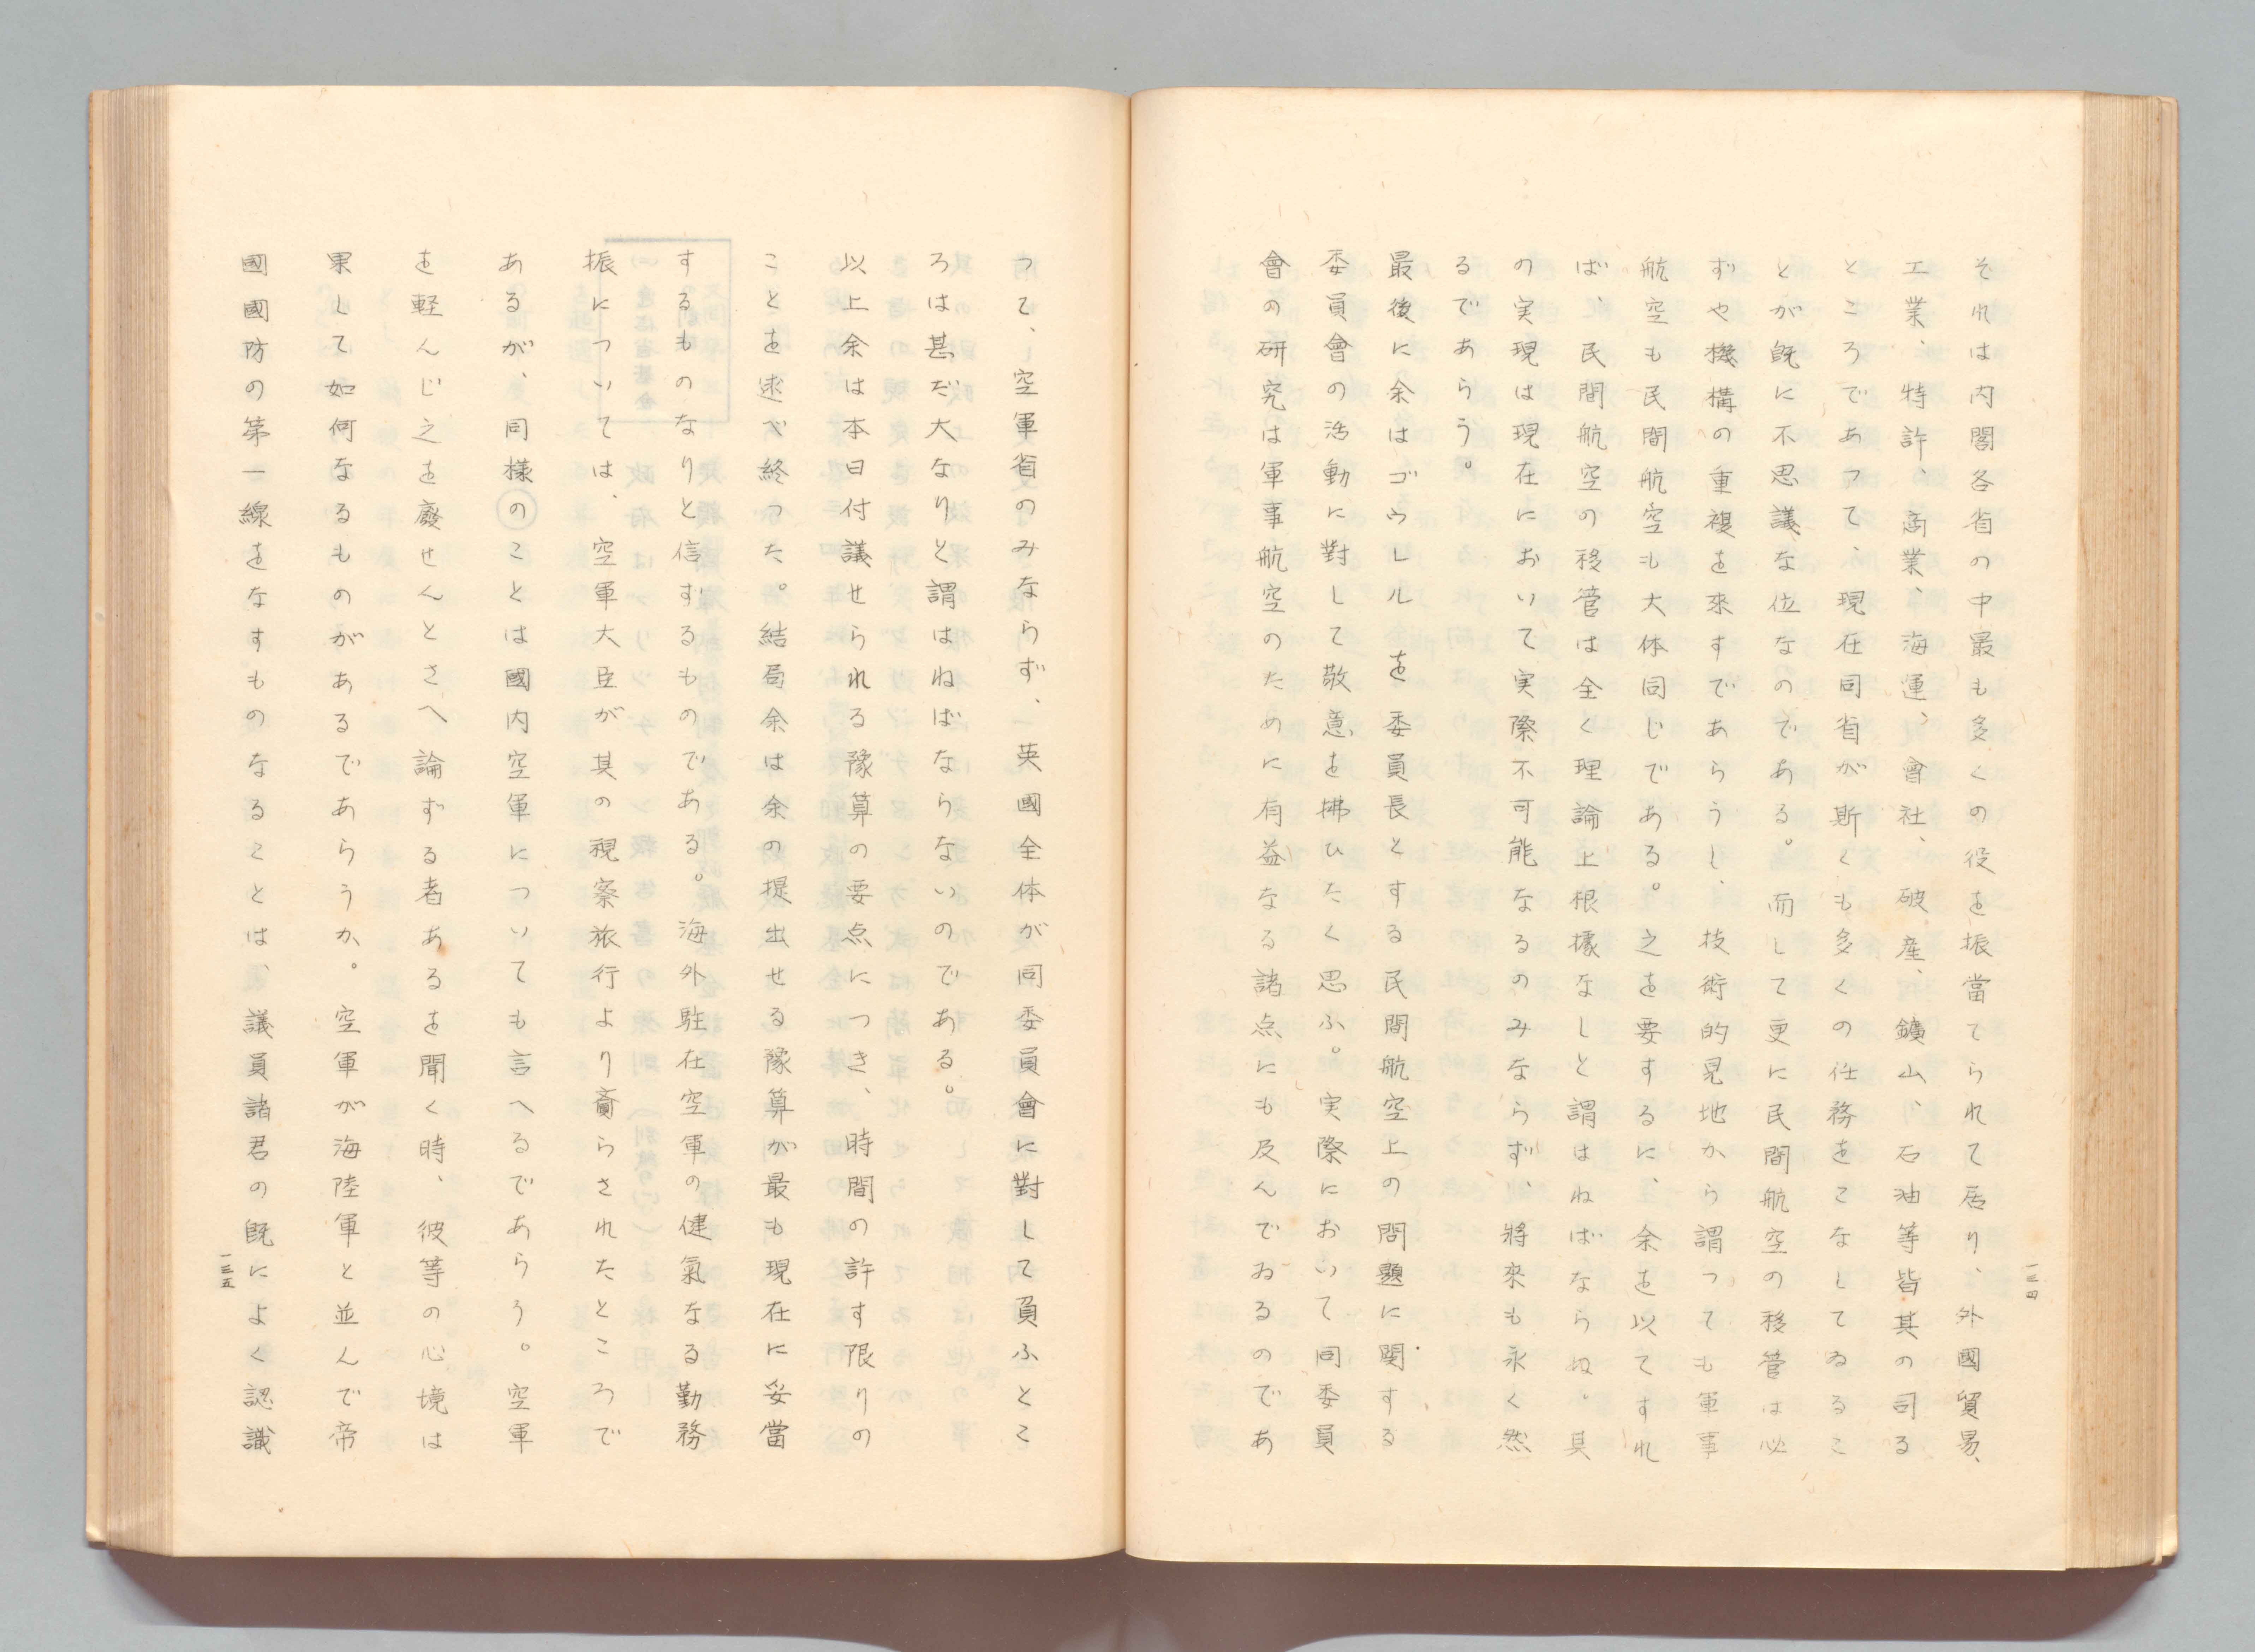 それは内閣各省の中最も多くの役を振當てられて居り、外國貿易、
工業、特許、商業、海運、會社、破産、鑛山、石油等皆其の司る
ところであつて、現在同省が斯くも多くの任務をこなしてゐるこ
とが既に不思議な位なのである。而して更に民間航空の移管は必
ずや機構の重複を來すであらうし、技術的見地から謂つても軍事
航空も民間航空も大体同じである。之を要するに、余を以てすれ
ば、民間航空の移管は全く理論上根據なしと謂はねばならぬ。其
の実現は現在において実際不可能なるのみならず、將來も永く然
るであらう。
最後に余はゴウレルを委員長とする民間航空上の問題に関する
委員會の活動に對して敬意を拂ひたく思ふ。実際において同委員
會の研究は軍事航空のために有益なる諸点にも及んでゐるのであ
一三四
つて、空軍省のみならず、英國全体が同委員會に對して負ふとこ
ろは甚だ大なりと謂はねばならないのである。
以上余は本日付議せられる豫算の要点につき、時間の許す限りの
ことを述べ終つた。結局余は余の提出せる豫算が最も現在に妥當
するものなりと信ずるものである。海外駐在空軍の健氣なる勤務
振については、空軍大臣が其の視察旅行より齎らされたところで
あるが、同様のことは國内空軍についても言へるであらう。空軍
を軽んじ之を廢せんとさへ論ずる者あるを聞く時、彼等の心境は
果して如何なるものがあるであらうか。空軍が海陸軍と並んで帝
國國防の第一線をなすものなることは、議員諸君の既によく認識
一三五